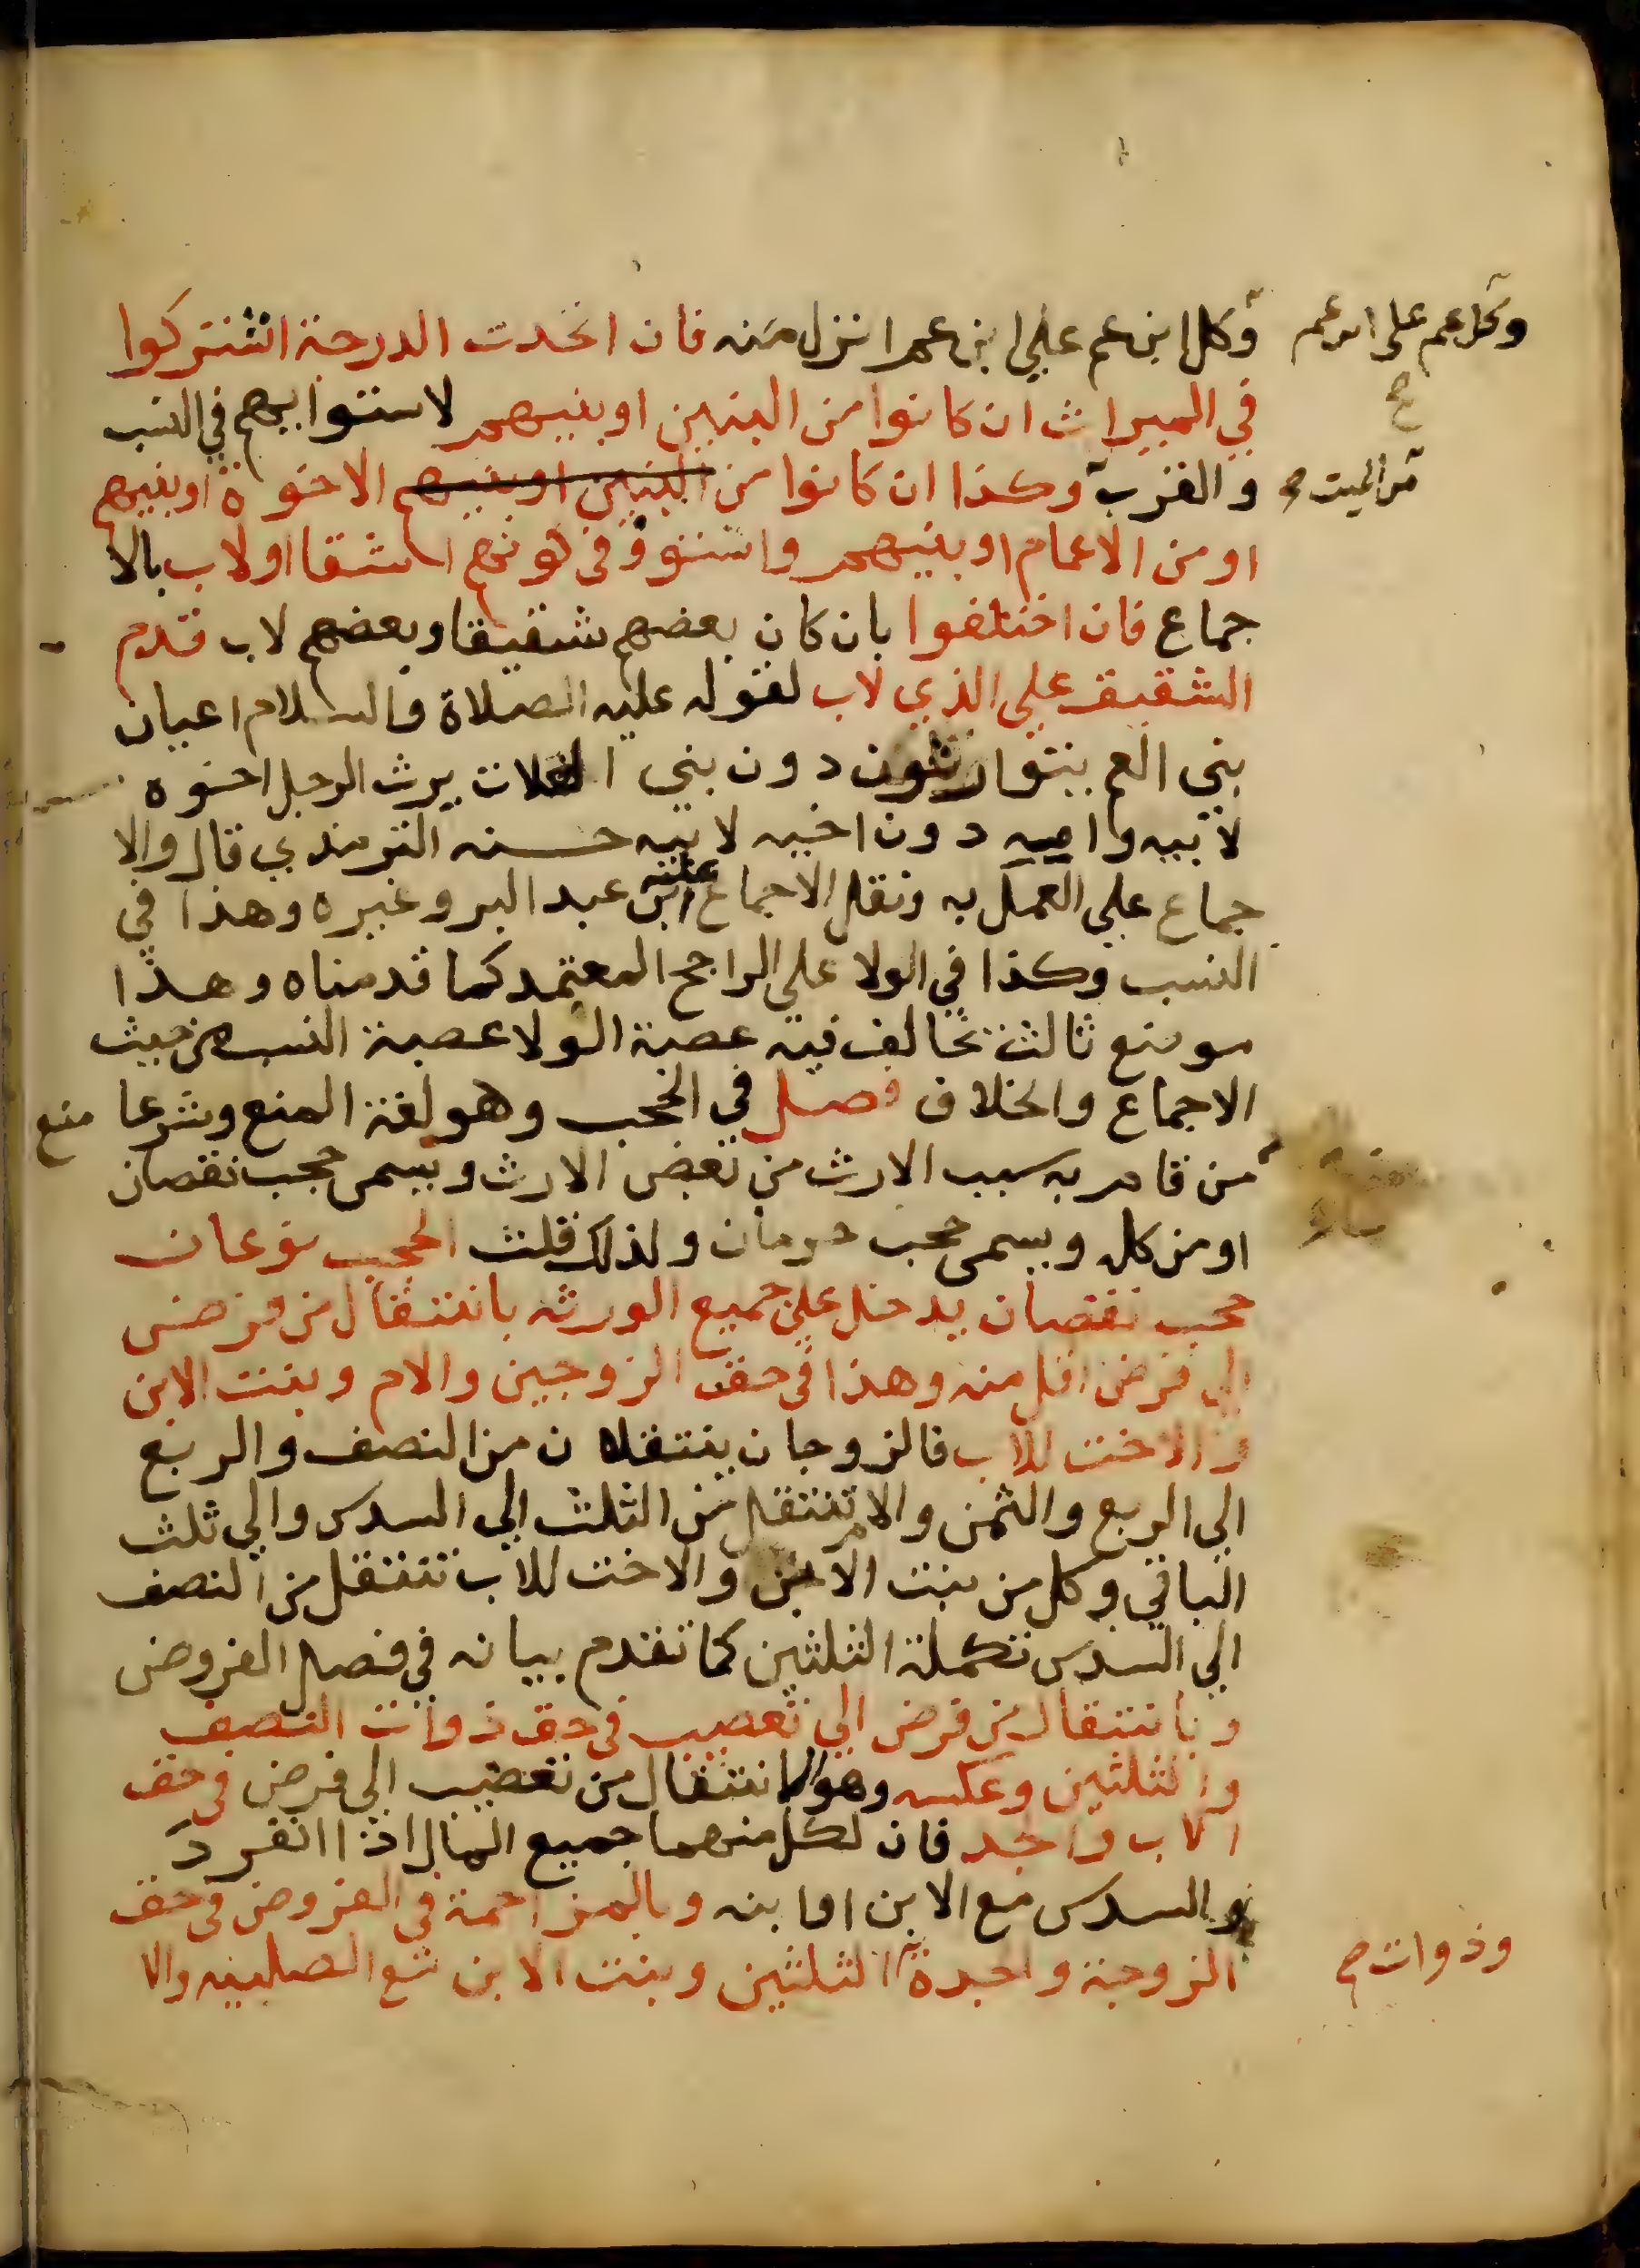 وكل عم على ابن عم
صح
وكل ابن عم علي ابن عم انزل منه فان اتحدت الدرجة اشتركوا
في الميراث ان كانوا من البنين او بنيهم لاستوايهم في النسب
والقرب وكذا ان كانوا من البنين او بنيهم الاخوة او بنيهم
من الميت صح
او من الاعمام او بنيهم واستووا في كونهم اشقا او لاب بالا
جماع فان اختلفوا بان كان بعضهم شقيقا وبعضهم لاب قدم
الشقيق علي الذي لاب لقوله عليه الصلاة والسلام اعيان
بني الام يتوارثون دون بني العلات يرث الرجل اخوه
لابيه وامه دون اخيه لابيه حسنه الترمذي قال والا
جماع علي العمل به ونقل الاجماع عليه ابن عبد البر وغيره وهذا في
النسب وكذا في الولا علي الراجح المعتمد كما قدمناه وهذا
موضع ثالث تخالف فيه عصبة الولا عصبة النسب من حيث
الاجماع والخلاف فصل في الحجب وهو لغة المنع وشرعا منع
من قام به سبب الارث من بعض الارث ويسمى حجب نقصان
او من كله ويسمى حجب حرمان ولذلك قلت الحجب نوعان
حجب نقصان يدخل علي جميع الورثه بانتقال من فرض
الي فرض اقل منه وهذا في حق الزوجين والام وبنت الابن
والاخت للاب فالزوجان ينتقلان من النصف والربع
الي الربع والثمن والام تنتقل من الثلث الي السدس والي ثلث
الباقي وكل من بنت الابن والاخت للاب تنتقل من النصف
الي السدس تكملة الثلثين كما تقدم بيانه في فصل الفروض
وبانتقال من فرض الي تعصيب في حق ذوات النصف
والثلثين وعكسه وهو الانتقال من تعصيب الي فرض في حق
الاب والجد فان لكل منهما جميع المال اذا انفرد
والسدس مع الابن او ابنه وبالمزاحمة في الفروض في حق
الزوجة والجدة الثلثين وبنت الابن مع الصلبيه والا
وذوات صح